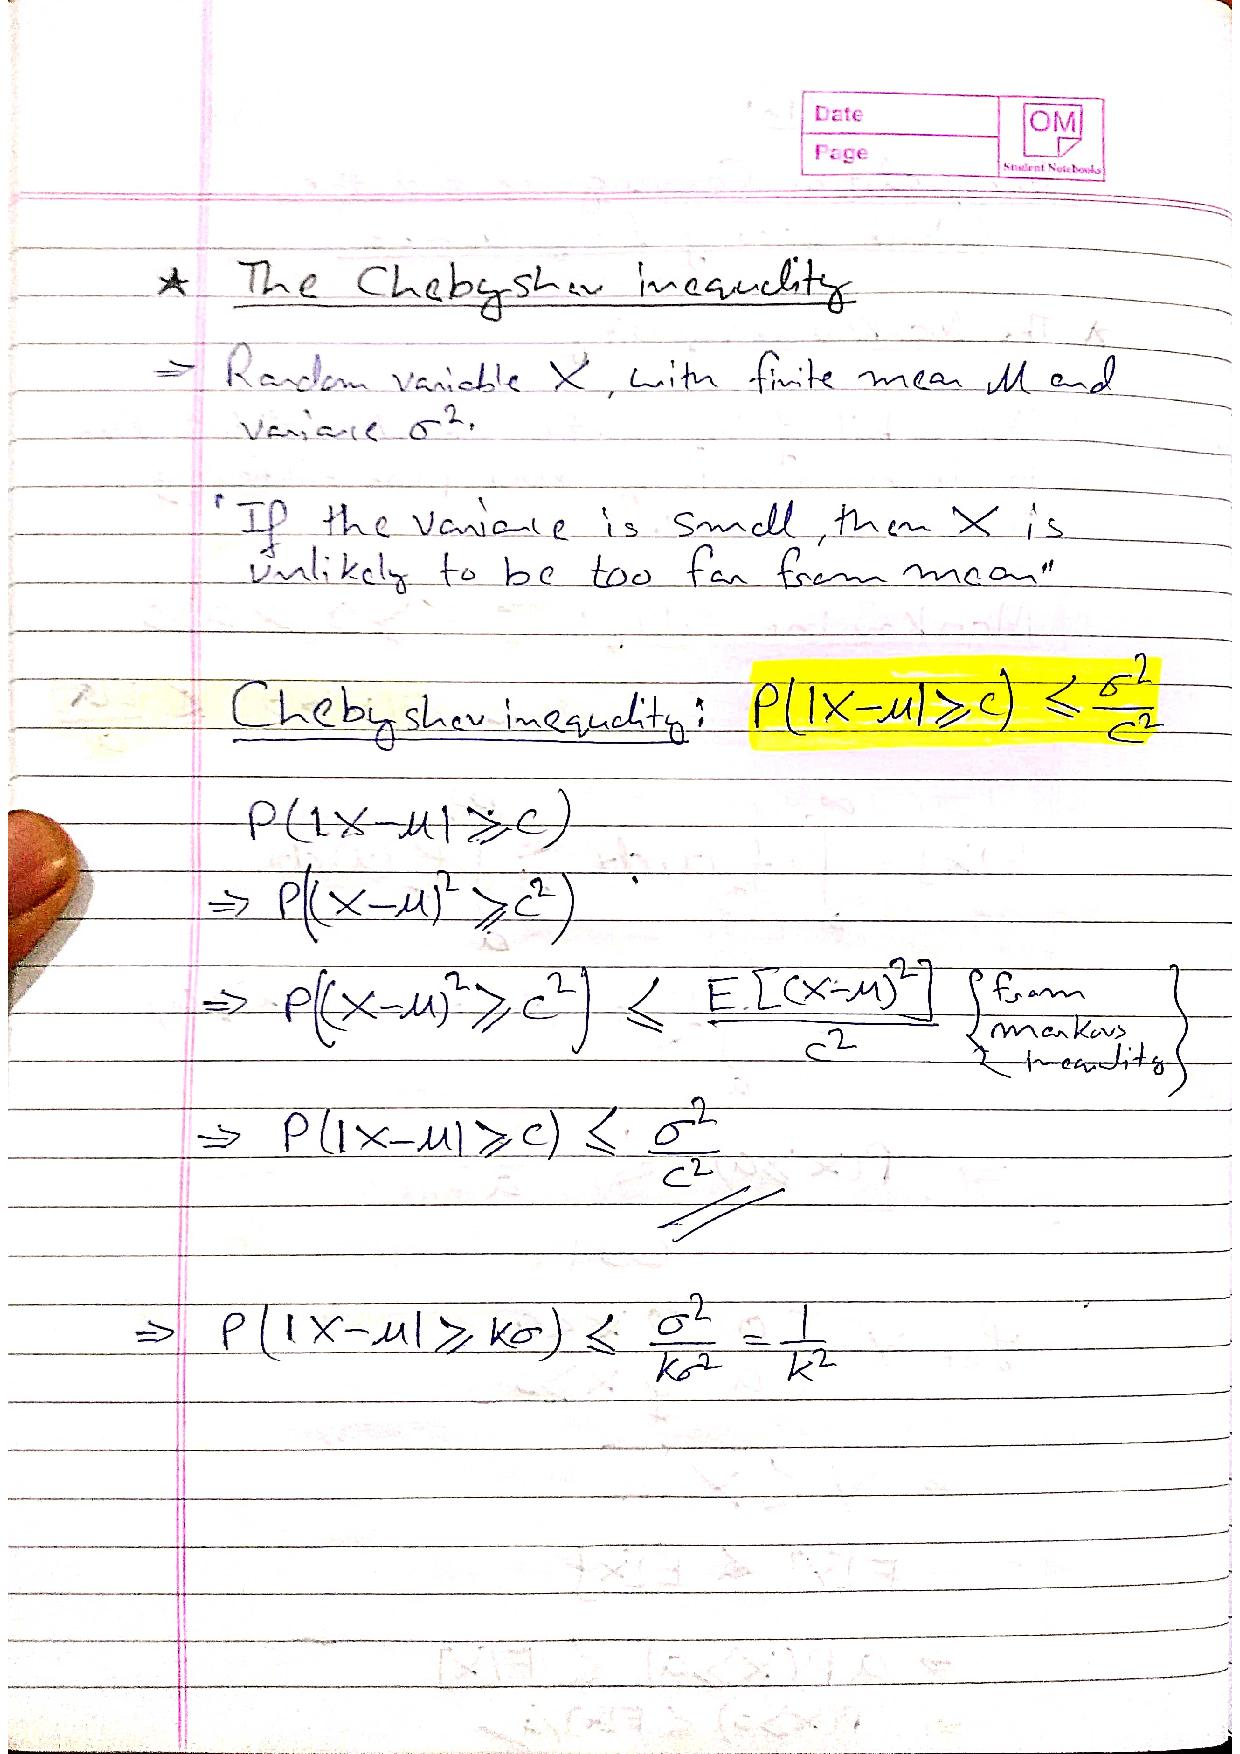 Date
OM
Page
Student Notebooks
★ The Chebyshev inequality
⇒ Random variable X, with finite mean μ and
variance σ².
"If the variance is small, then X is
unlikely to be too far from mean"
Chebyshev inequality: P(|X-μ|⩾c) ⩽ σ²/c²
P(|X-μ|⩾c)
⇒ P((X-μ)²⩾c²)
⇒ P((X-μ)²⩾c²) ⩽ E[(X-μ)²]/c² {from markovs inequality}
⇒ P(|X-μ|⩾c) ⩽ σ²/c²
⇒ P(|X-μ|⩾kσ) ⩽ σ²/kσ² = 1/k²